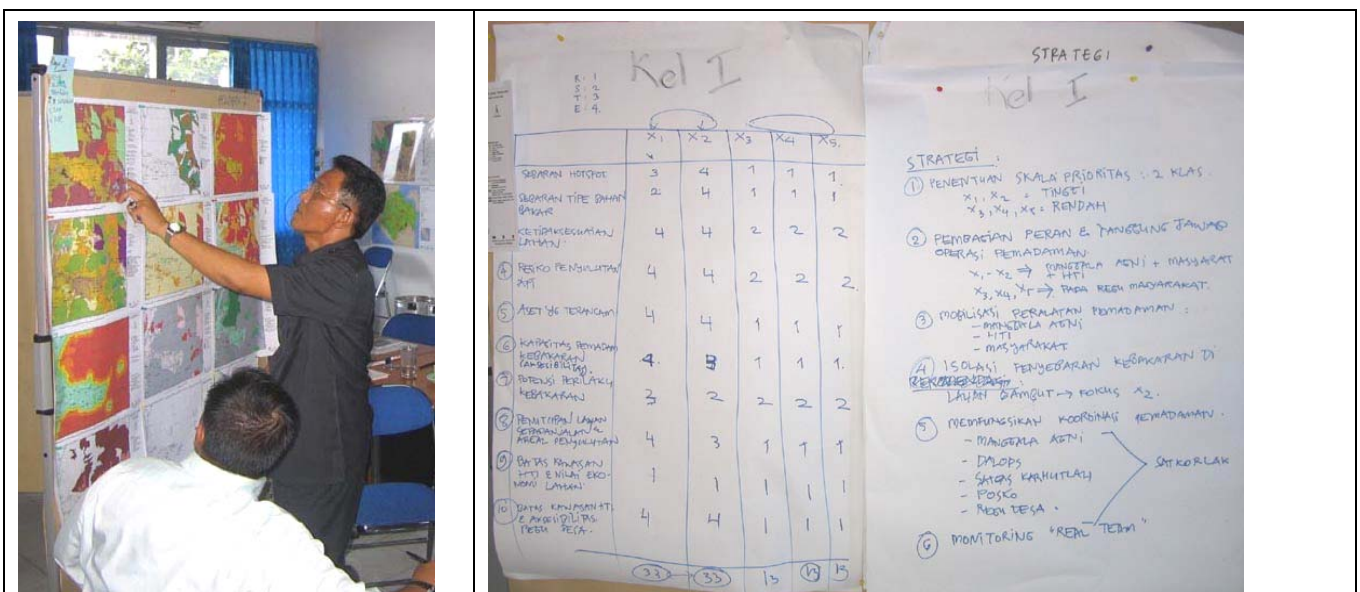 Kel I
R : 1
S : 2
T : 3
E : 4.
X1 X2 X3 X4 X5.
SEBARAN HOTSPOT 3 4 1 1 1.
SEBARAN TIPE BAHAN BAKAR 2 4 1 1 1
KETIDAKSESUAIAN LAHAN. 4 4 2 2 2
4 RESIKO PENYULUTAN API 4 4 2 2 2.
5 ASET YG TERANCAM 4 4 1 1 1
6 KAPASITAS PEMADAM KEBAKARAN (AKSESIBILITAS). 4. 3 1 1 1.
7 POTENSI PERILAKU KEBAKARAN 2 2 2 2
8 PENUTUPAN LAHAN SEPANJANG JALAN & AREAL PENYULUTAN 4 3 1 1 1
9 BATAS KAWASAN HTI & NILAI EKONOMI LAHAN 1 1 1 1 1
10 BATAS KAWASAN HTI & AKSESIBILITAS REGU DESA. 4 4 1 1 1
33 33 13 13 13
STRATEGI
Kel I
STRATEGI :
1 PENENTUAN SKALA PRIORITAS : 2 KLAS.
X1, X2 = TINGGI
X3, X4, X5 = RENDAH
2 PEMBAGIAN PERAN & TANGGUNG JAWAB
OPERASI PEMADAMAN.
X1 - X2 ⇒ MANGGALA AGNI + MASYARAKAT
+ HTI
X3, X4, X5 ⇒ PADA REGU MASYARAKAT.
3 MOBILISASI PERALATAN PEMADAMAN :
- MANGGALA AGNI
- HTI
- MASYARAKAT
4 ISOLASI PENYEBARAN KEBAKARAN DI
LAHAN GAMBUT → FOKUS X2.
5 MEMFUNGSIKAN KOORDINASI PEMADAMAN.
- MANGGALA AGNI
- DALOPS
- SATGAS KARHUTLAH
- POSKO
- REGU DESA.
SATKORLAK
6 MONITORING "REAL TEAM"